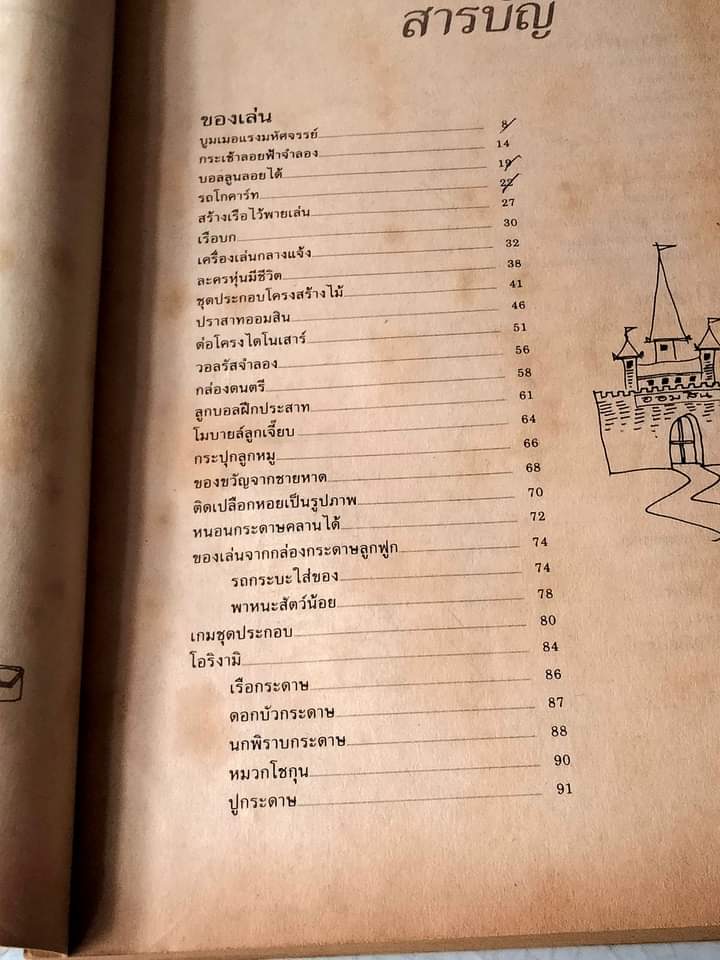 สารบัญ
ของเล่น
บูมเมอแรงมหัศจรรย์ 8
กระเช้าลอยฟ้าจำลอง 14
บอลลูนลอยได้ 19
รถโกคาร์ท 22
สร้างเรือไว้พายเล่น 27
เรือบก 30
เครื่องเล่นกลางแจ้ง 32
ละครหุ่นมีชีวิต 38
ชุดประกอบโครงสร้างไม้ 41
ปราสาทออมสิน 46
ต่อโครงไดโนเสาร์ 51
วอลรัสจำลอง 56
กล่องดนตรี 58
ลูกบอลฝึกประสาท 61
โมบายล์ลูกเจี๊ยบ 64
กระปุกลูกหมู 66
ของขวัญจากชายหาด 68
ติดเปลือกหอยเป็นรูปภาพ 70
หนอนกระดาษคลานได้ 72
ของเล่นจากกล่องกระดาษลูกฟูก 74
รถกระบะใส่ของ 74
พาหนะสัตว์น้อย 78
เกมชุดประกอบ 80
โอริงามิ 84
เรือกระดาษ 86
ดอกบัวกระดาษ 87
นกพิราบกระดาษ 88
หมวกโชกุน 90
ปูกระดาษ 91
ออมสิน